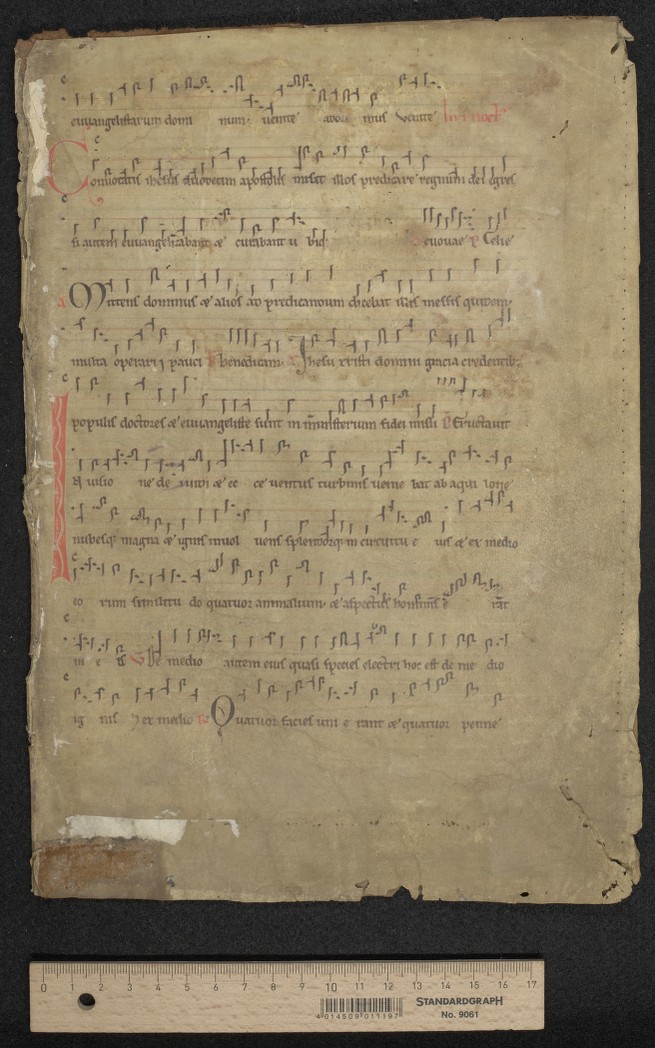 euuangelistarum domi num uenite ado mus Venite In i noct
Conuocatis ihesus duodecim apostolis misit illos predicare regnum dei egres
si autem euuangelizabant & curabant u biq;
euouae Celi e
Mittens dominus & alios ad predicandum dicebat illis messis quidem
multa operarii pauci benedicam Ihesu xristi domini gracia credentib;
populis doctores & euuangeliste sunt in ministerium fidei missi Eructauit
uisio ne dei uidi & ec ce uentus turbinis uenie bat ab aquilone
nubesq; magna & ignis inuol uens splendorq; in circuitu e ius & ex medio
eo rum similitu do quatuor animalium & aspectus hominis
in e is De medio autem eius quasi species electri hoc est de me dio
ig nis ex medio Quatuor facies uni e rant & quatuor penne
0 1 2 3 4 5 6 7 8 9 10 11 12 13 14 15 16 17
4 014509 011197
STANDARDGRAPH
No. 9061